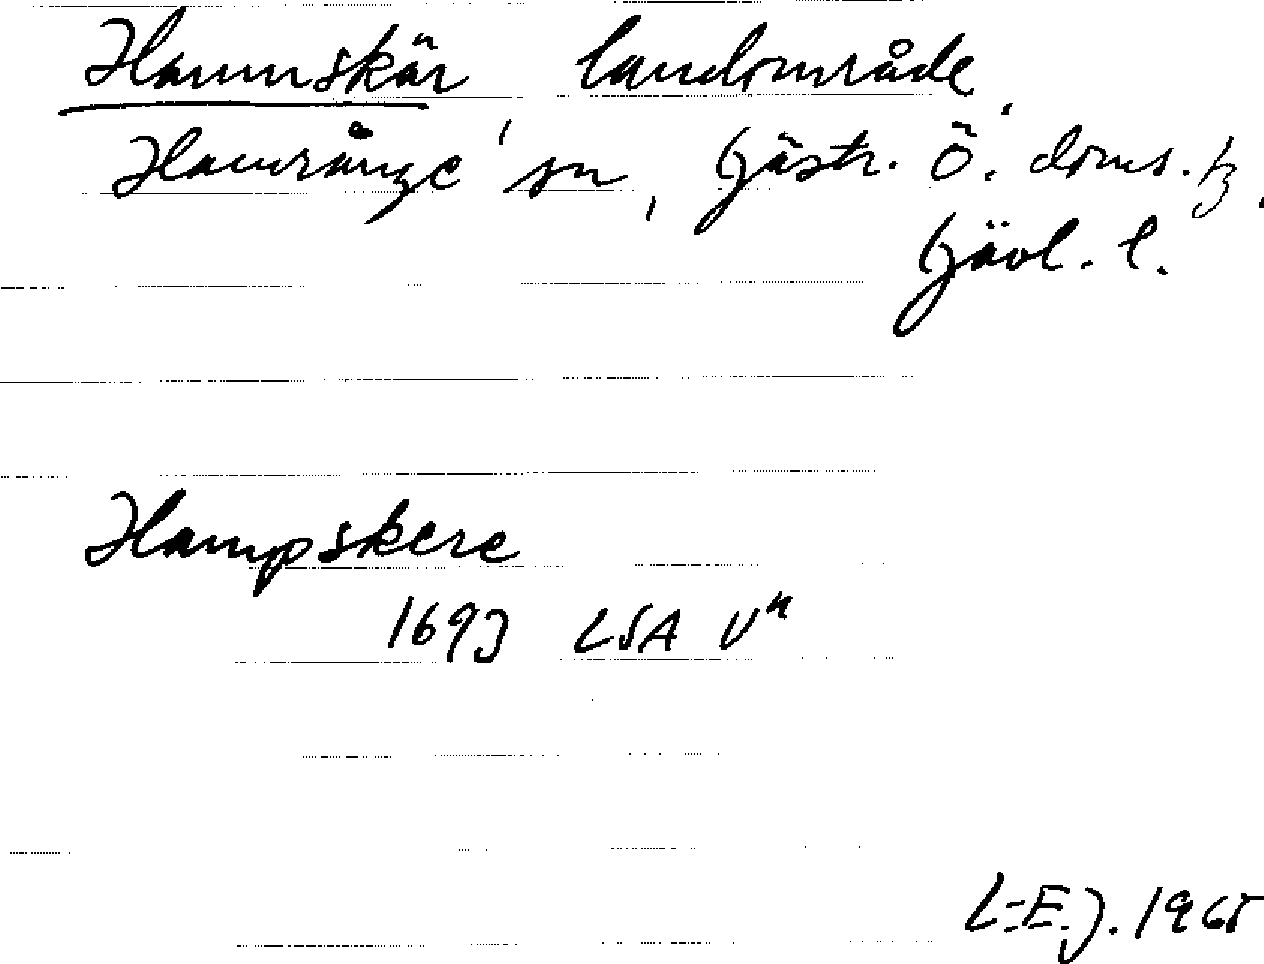 Hamnskär, landområde.
Hamrånge sn, Gästr. Ö. doms.
Gävl. l.
Hampskere
1693 LSA V
L-E.J. 1965